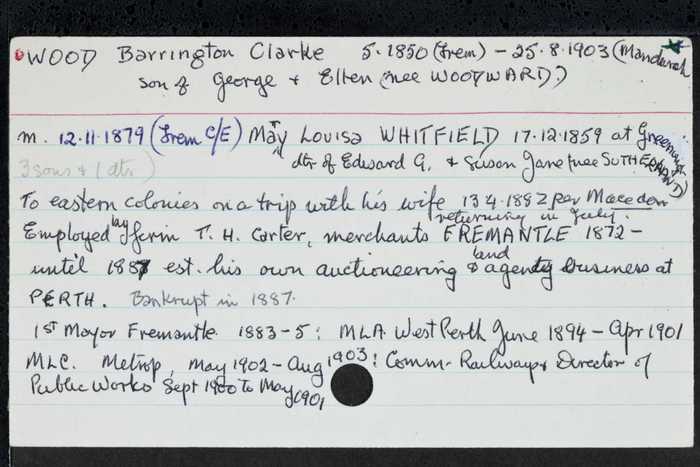 WOOD Barrington Clarke 5.1850 (Frem) – 25.8.1903 (Mandurah
son of George + Ellen (nee WOODWARD)
m. 12.11.1879 (Frem C/E) Mary Louisa WHITFIELD 17.12.1859 at
3 sons & 1 dtr) dtr of Edward G. & Susan Jane (nee SUTHERLAND)
To eastern colonies on a trip with his wife 13.4.1882 per Macedon
returning in July.
Employed by firm T. H. Carter, merchants FREMANTLE 1872 –
until 1887 est. his own auctioneering & land agency business at
PERTH. Bankrupt in 1887.
1st Mayor Fremantle 1883-5: MLA West Perth June 1894 – Apr 1901
MLC. Metrop, May 1902 – Aug 1903: Comm. Railways & Director of
Public Works Sept 1900 to May 1901